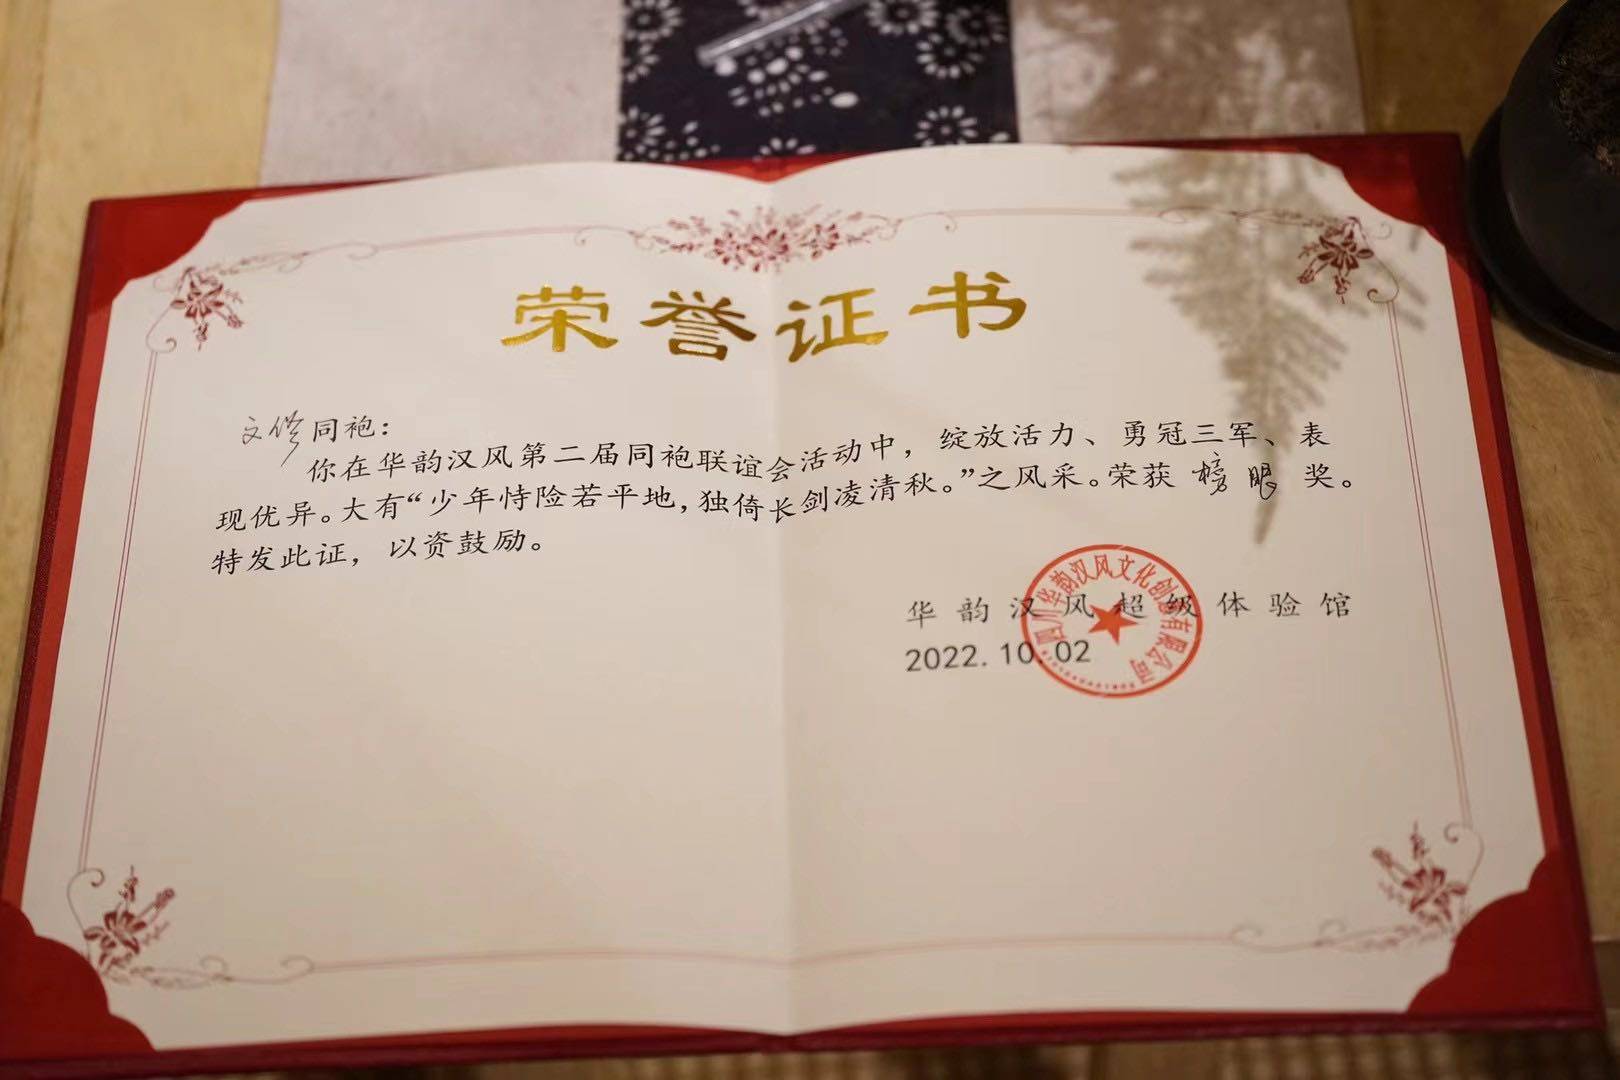 荣誉证书
文修同袍：
你在华韵汉风第二届同袍联谊会活动中，绽放活力、勇冠三军、表
现优异。大有“少年恃险若平地，独倚长剑凌清秋。”之风采。荣获 榜眼 奖。
特发此证，以资鼓励。
华韵汉风超级体验馆
2022.10.02
四川华韵汉风文化创意有限公司